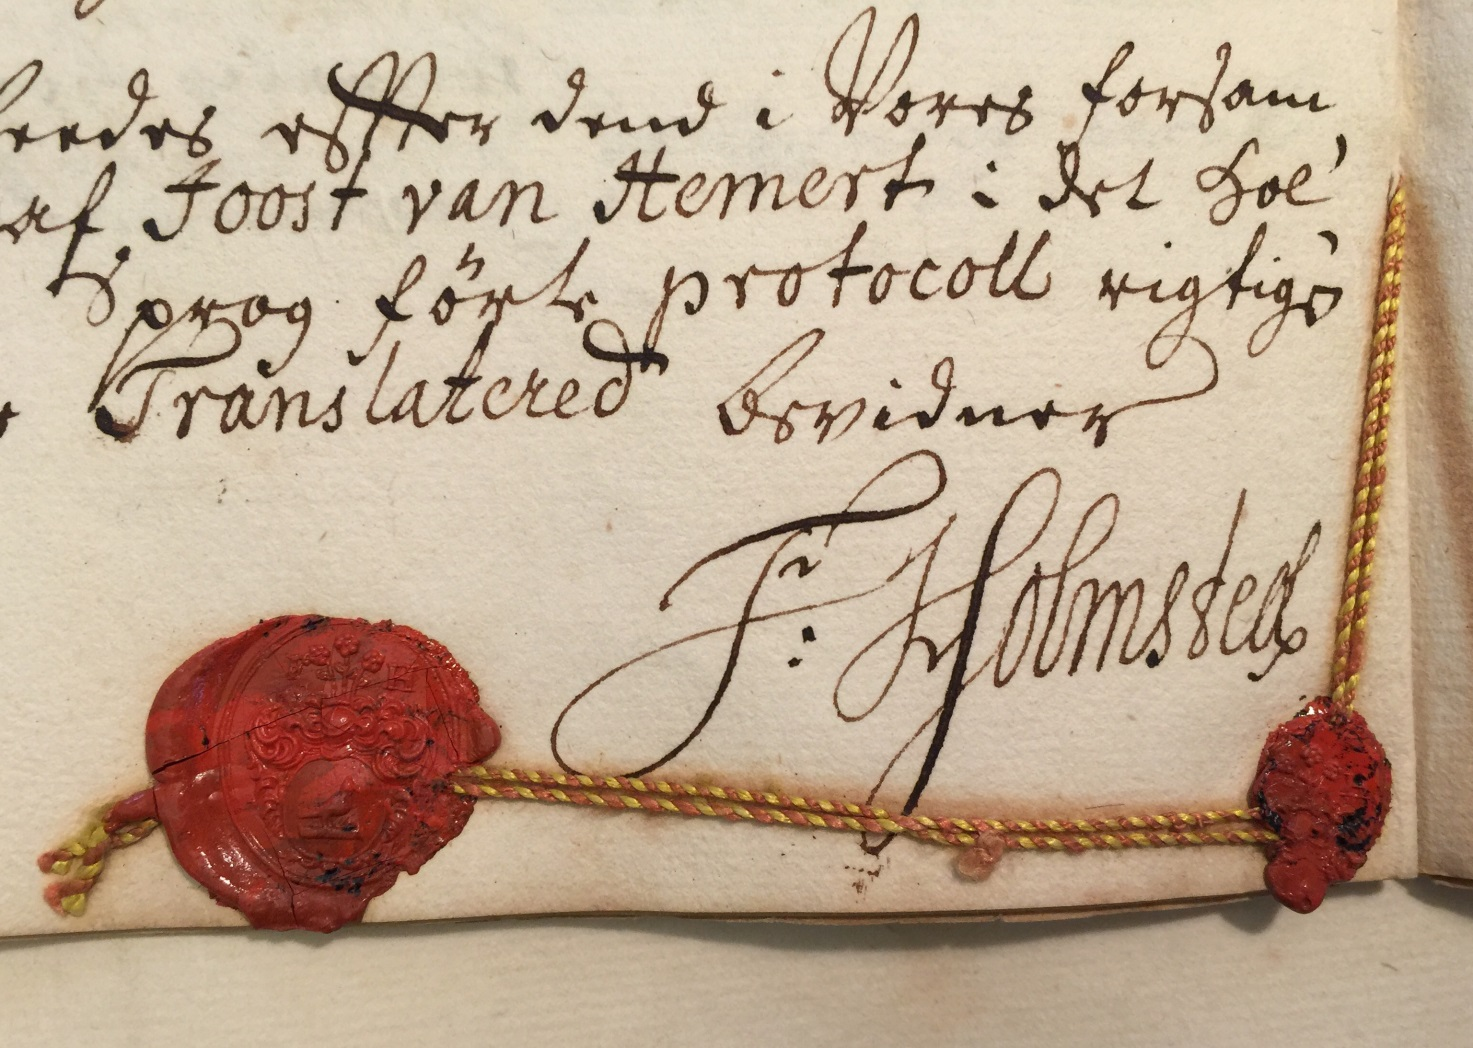 leedes effter dend i Vores forsam
af Joost van Hemert i det Hol'
Sprog förte protocoll rigtig
Translatered bevidner
Fr: Holmsted